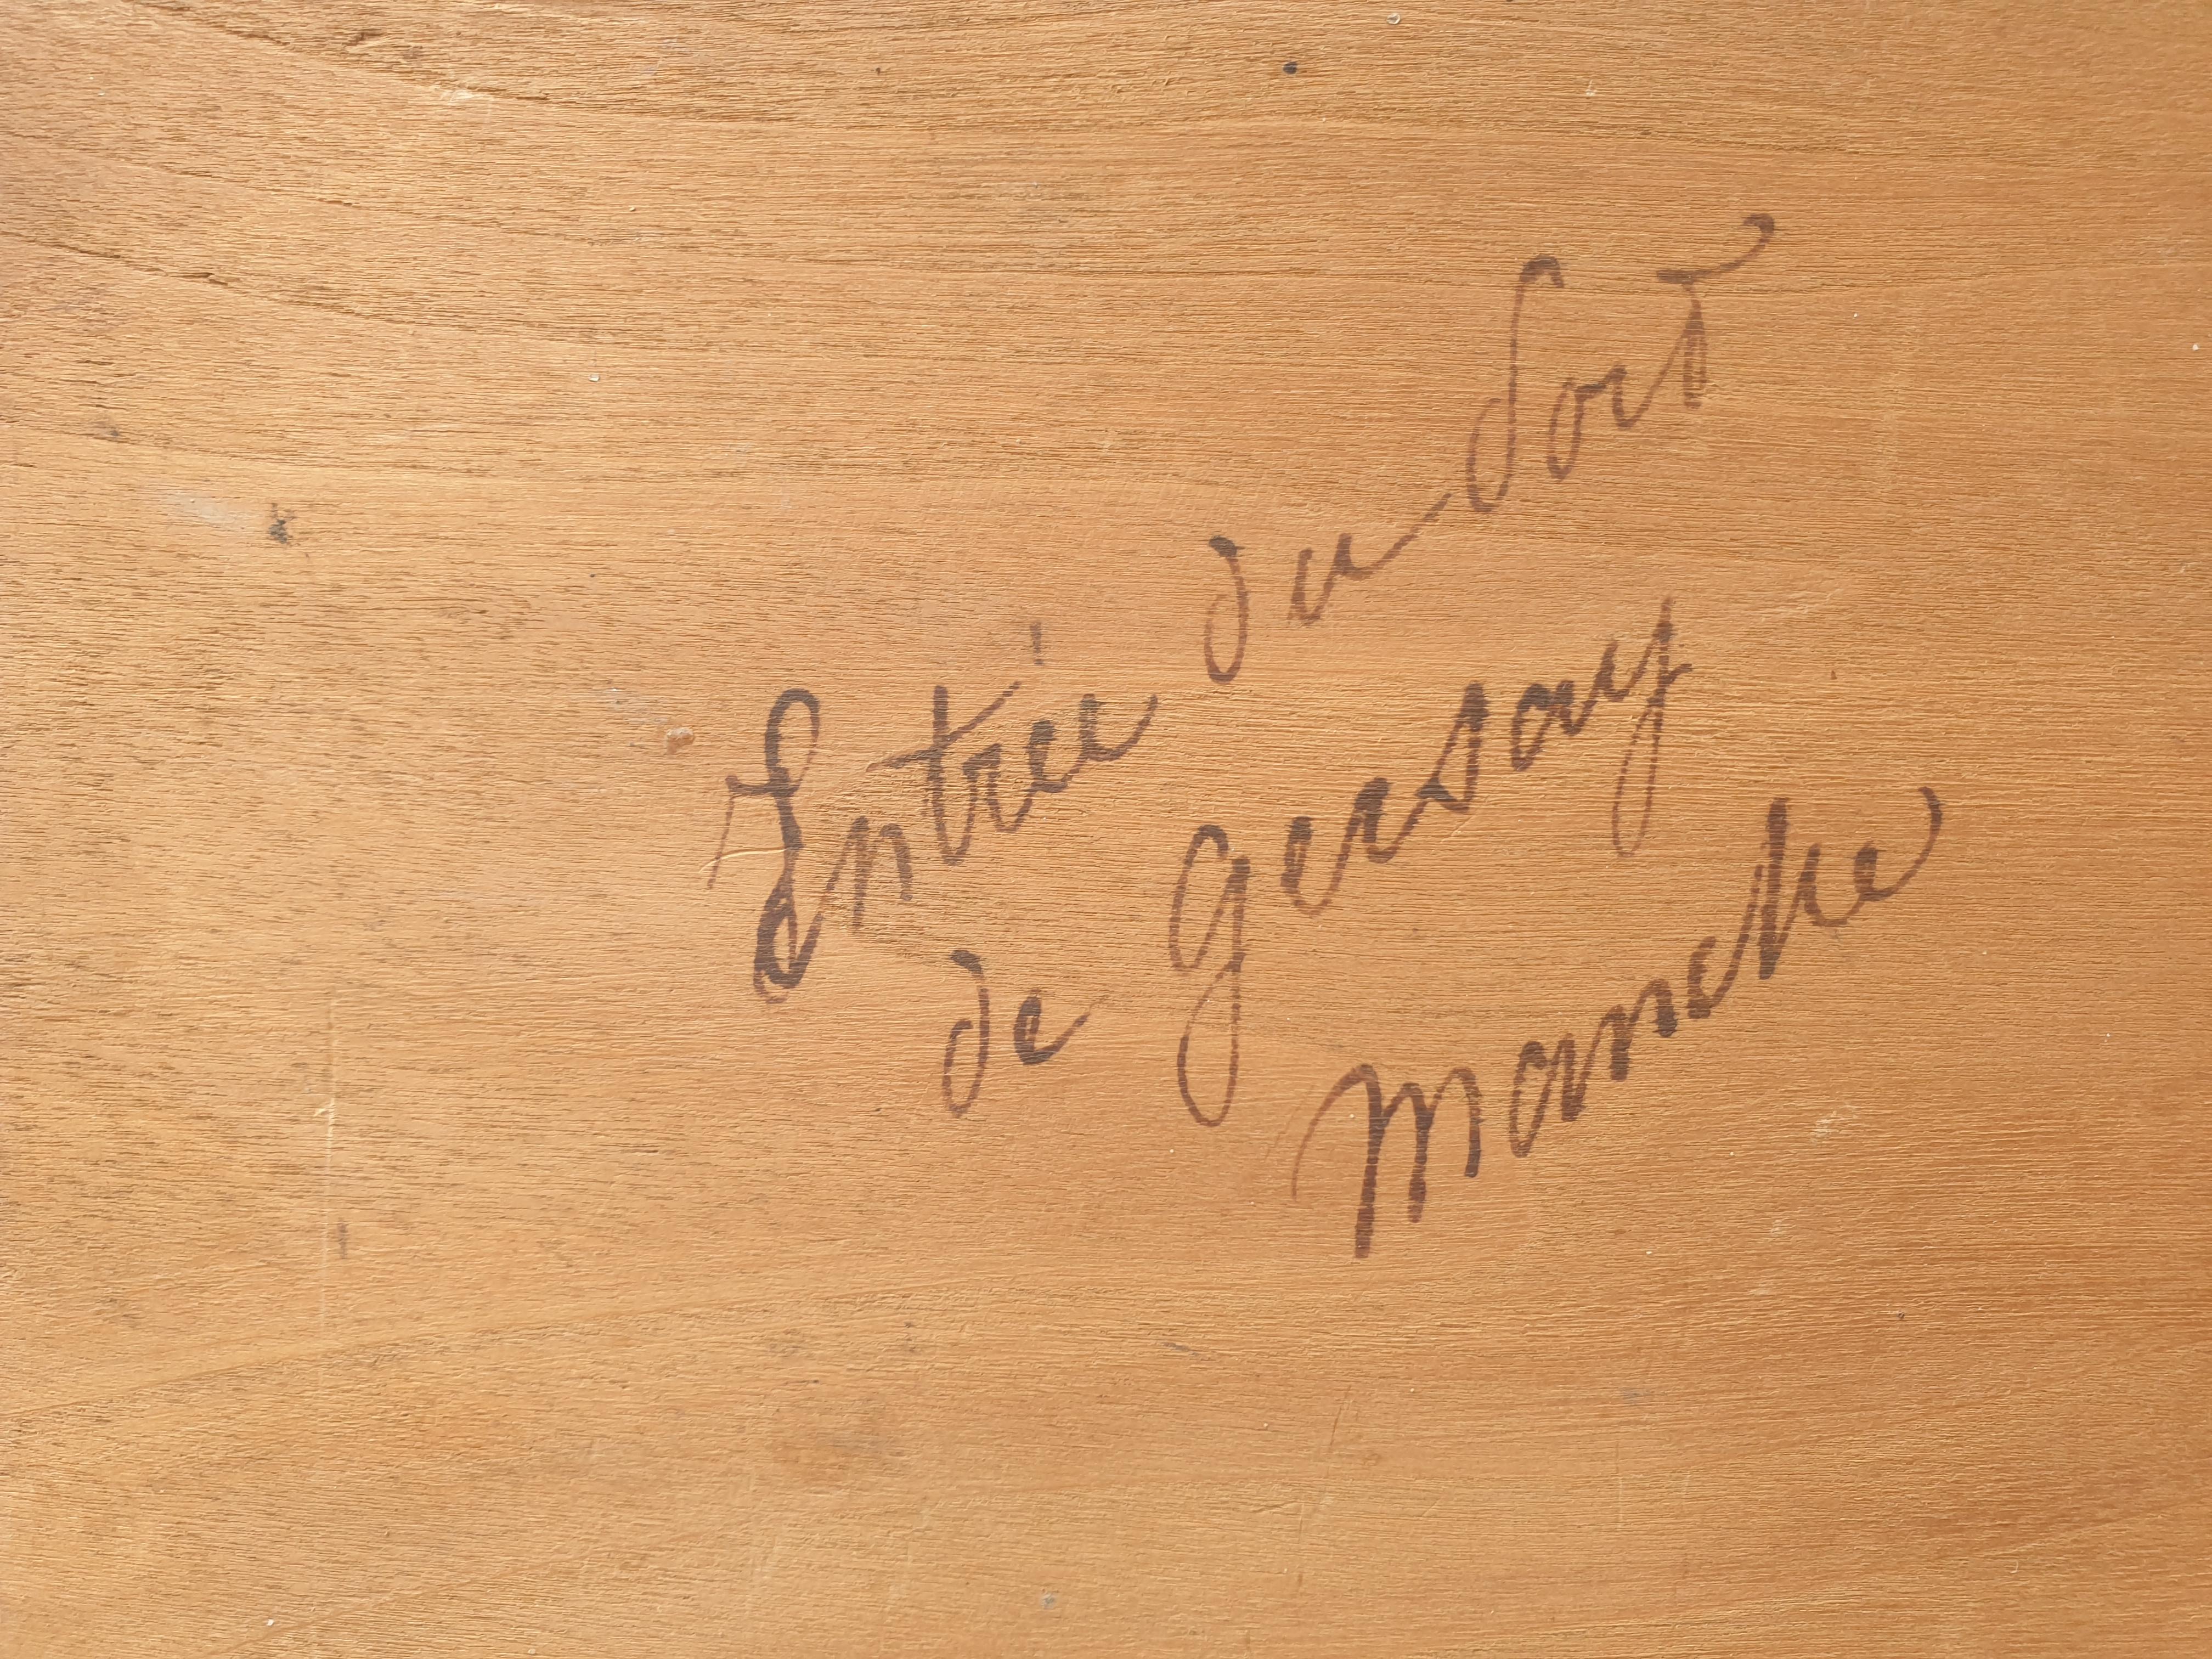 Entrée du
de Gersay
Manche